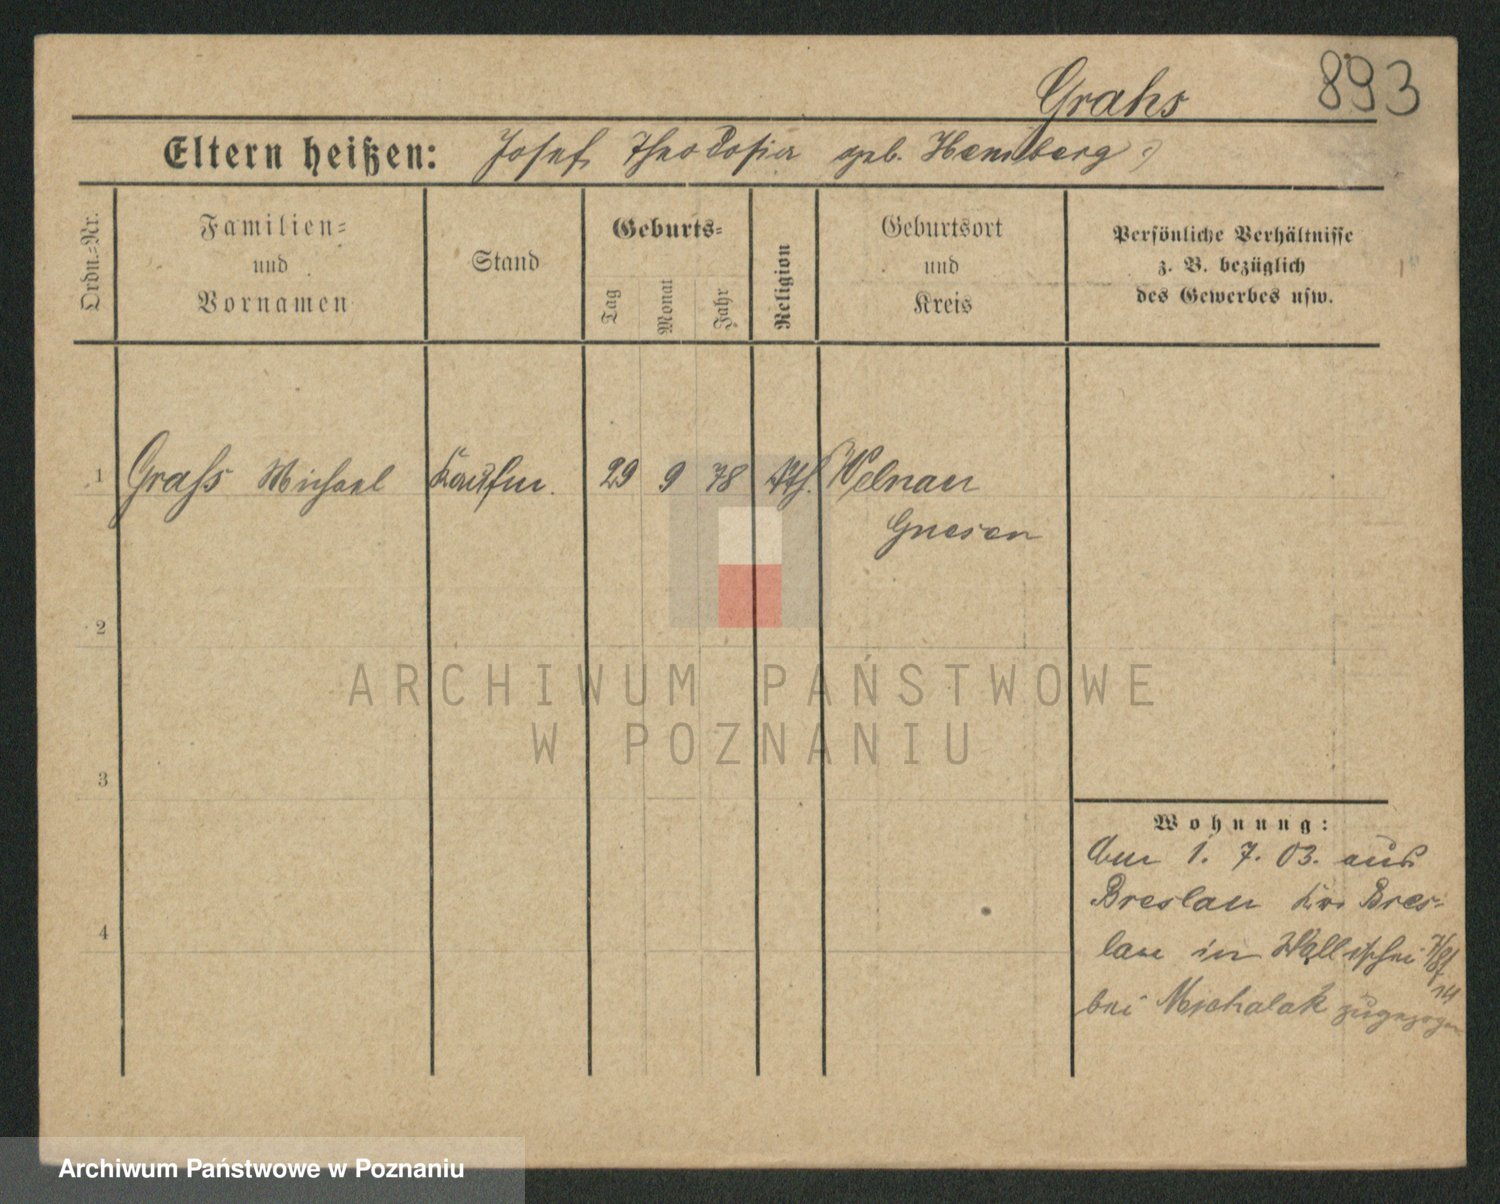 893
Grahs
Eltern heißen: Josef, Theodosia geb. Hemberg
Ordn.-Nr.
Familien-
und
Vornamen
Stand
Geburts-
Tag
Monat
Jahr
Religion
Geburtsort
und
Kreis
Persönliche Verhältnisse
z. B. bezüglich
des Gewerbes usw.
1 Grahs Michael Kaufm. 29 9 78 kth. Welnau
Gnesen
2
3
4
Wohnung:
Am 1. 7. 03. aus
Breslau Krs Bres-
lau in Wallischei
bei Michalak zugezogen
ARCHIWUM PAŃSTWOWE
W POZNANIU
Archiwum Państwowe w Poznaniu